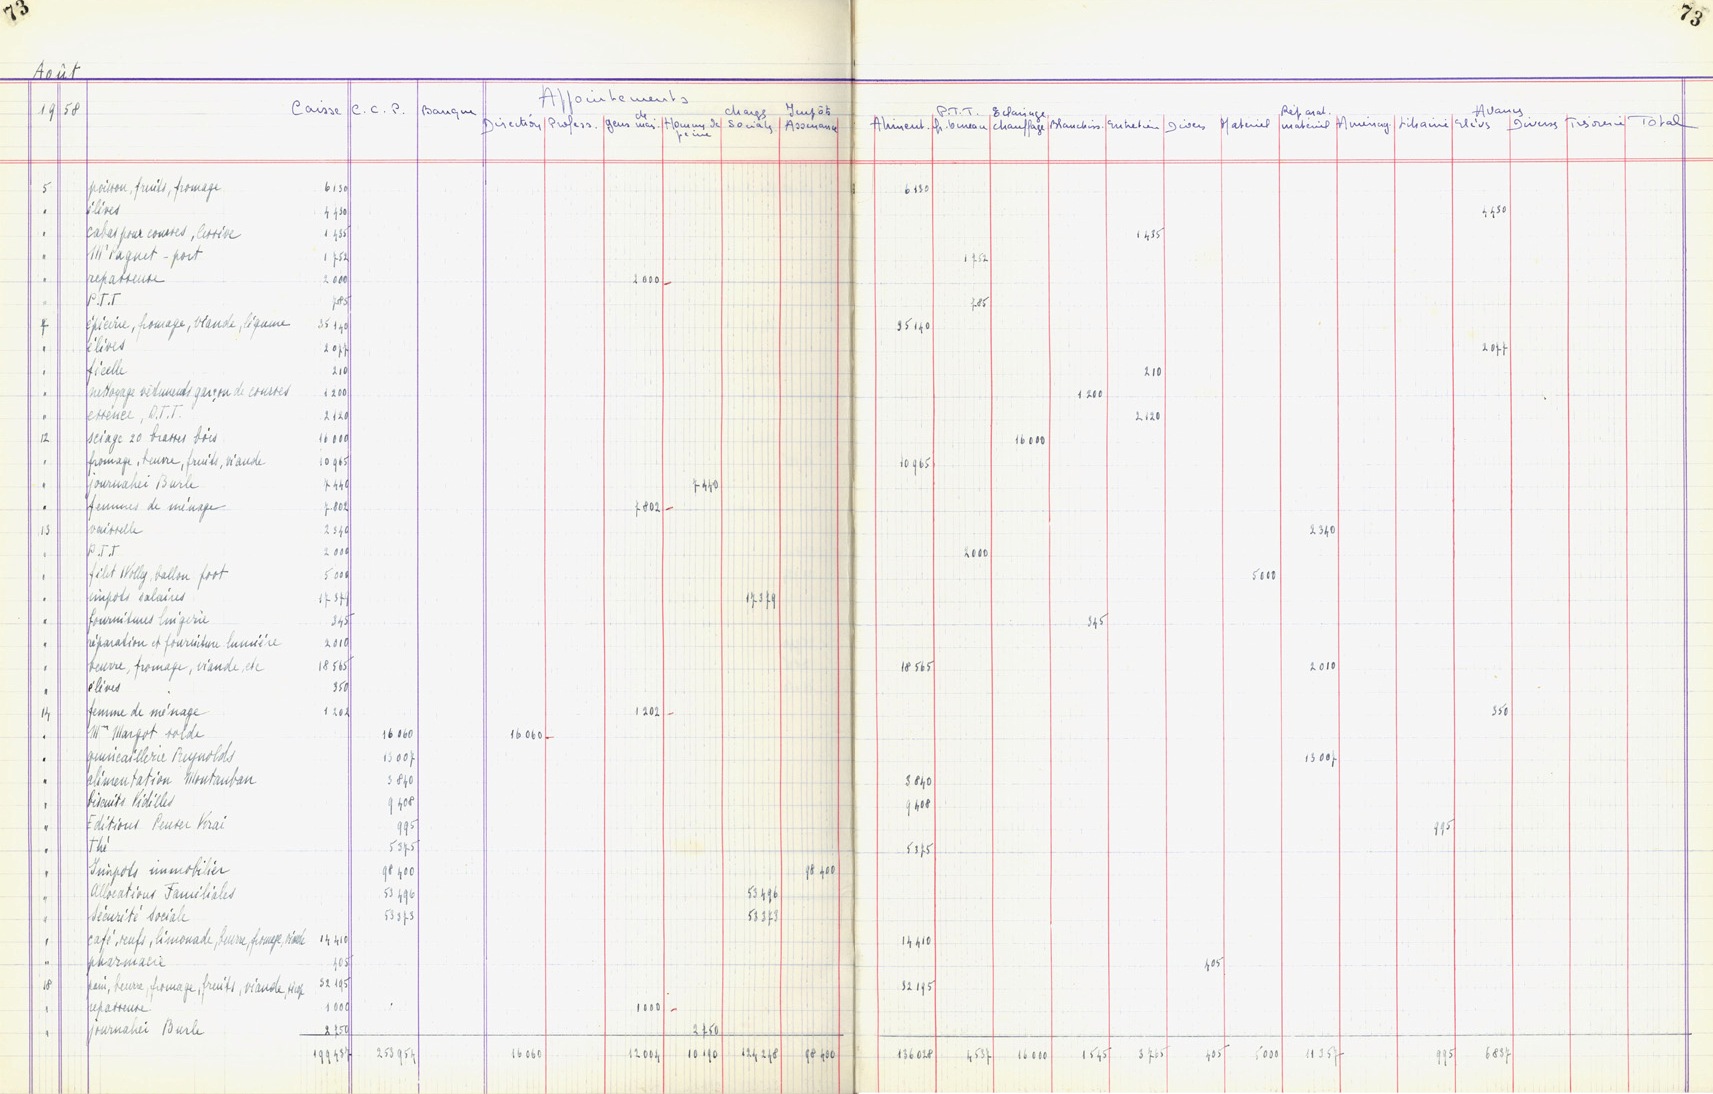 73 73
Août
1958 Caisse C.C.P. Banque Appointements
Direction Profess. gens de mais. Homme de peine Charges Sociales Impôts Assurance Aliment. P.T.T. fr. bureau Eclairage chauffage Blanchis. Entretien Divers Matériel Réparat. matériel Aménag Librairie Avances Elèves Diverses Trésorerie Total
5 poisson, fruits, fromage 6130 6130
" élèves 4430 4430
" cabas pour courses, lessive 1435 1435
" Mr Paquet - port 1752 1752
" repasseuse 2000 2000
" P.T.T 785 785
7 épicerie, fromage, viande, légume 35140 35140
" élèves 2077 2077
" ficelle 210 210
" nettoyage vêtements garçon de courses 1200 1200
" essence, P.T.T. 2120 2120
12 sciage 20 brasses bois 16000 16000
" fromage, beurre, fruits, viande 10965 10965
" journalier Burle 7440 7440
" femmes de ménage 7802 7802
13 vaisselle 2340 2340
" P.T.T 2000 2000
" filet Wolly, ballon foot 5000 5000
" impots salaires 17379 17379
" fournitures lingerie 345 345
" réparation et fourniture lumière 2010
" beurre, fromage, viande, etc 18565 18565 2010
" élèves 350
14 femme de ménage 1202 1202 350
" Mme Margot solde 16060 16060
" quincaillerie Reynolds 13007 13007
" alimentation Montauban 3840 3840
" biscuits Vidilles 9408 9408
" Editions Penser Vrai 995 995
" Thé 5375 5375
" Impots immobilier 98400 98400
" Allocations Familiales 53496 53496
" Sécurité Sociale 53373 53373
" café, oeufs, limonade, beurre, fromage, viande 14410 14410
" pharmacie 405 405
18 pain, beurre, fromage, fruits, viande, 32195 32195
" repasseuse 1000 1000
" journalier Burle 2750 2750
199437 253954 16060 12004 10190 124248 98400 136028 4537 16000 1545 3765 405 5000 17357 995 6857